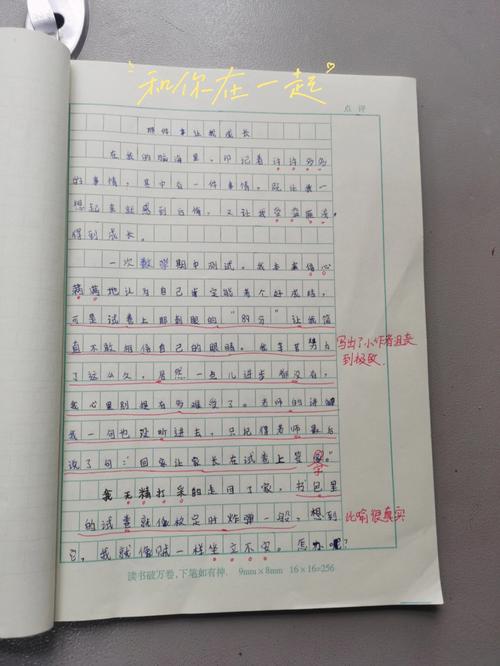 和你在一起
点 评
那件事让我成长
在我的脑海里，印记着许许多多
的事情，其中有一件事情，既让我一
想起来就感到后悔，又让我受益匪浅，
得到成长。
一次数学期中测试，我本来信心
满满地认为自己肯定能考个好成绩，
可是试卷上那刺眼的“89分”让我简
直不敢相信自己的眼睛。我辛苦努力
了这么久，居然一点儿进步都没有，
我心里别提有多难受了。老师的讲解
我一句也没听进去，只记得老师最后
说了句：“回家让家长在试卷上签
字
写出了小作者沮丧
到极致。
我无精打采的走回了家，书包里
的试卷就像枚定时炸弹一般，想到
比喻很真实
它，我就像贼一样坐立不安。怎办呢？
读书破万卷，下笔如有神. 9mm×8mm 16×16=256